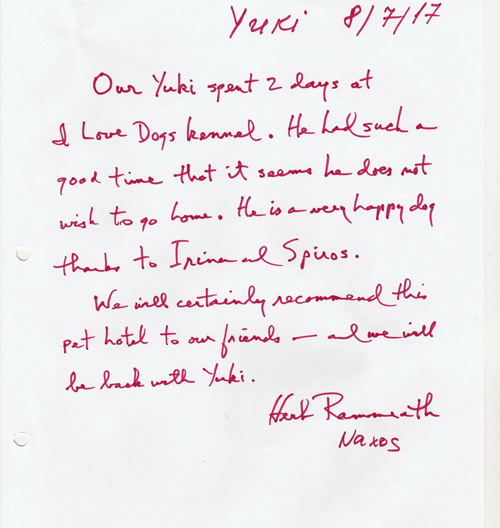 Yuki 8/7/17
Our Yuki spent 2 days at
I Love Dogs kennel. He had such a
good time that it seems he does not
wish to go home. He is a very happy dog
thanks to Irina and Spiros.
We will certainly recommend this
pet hotel to our friends — and we will
be back with Yuki.
Naxos